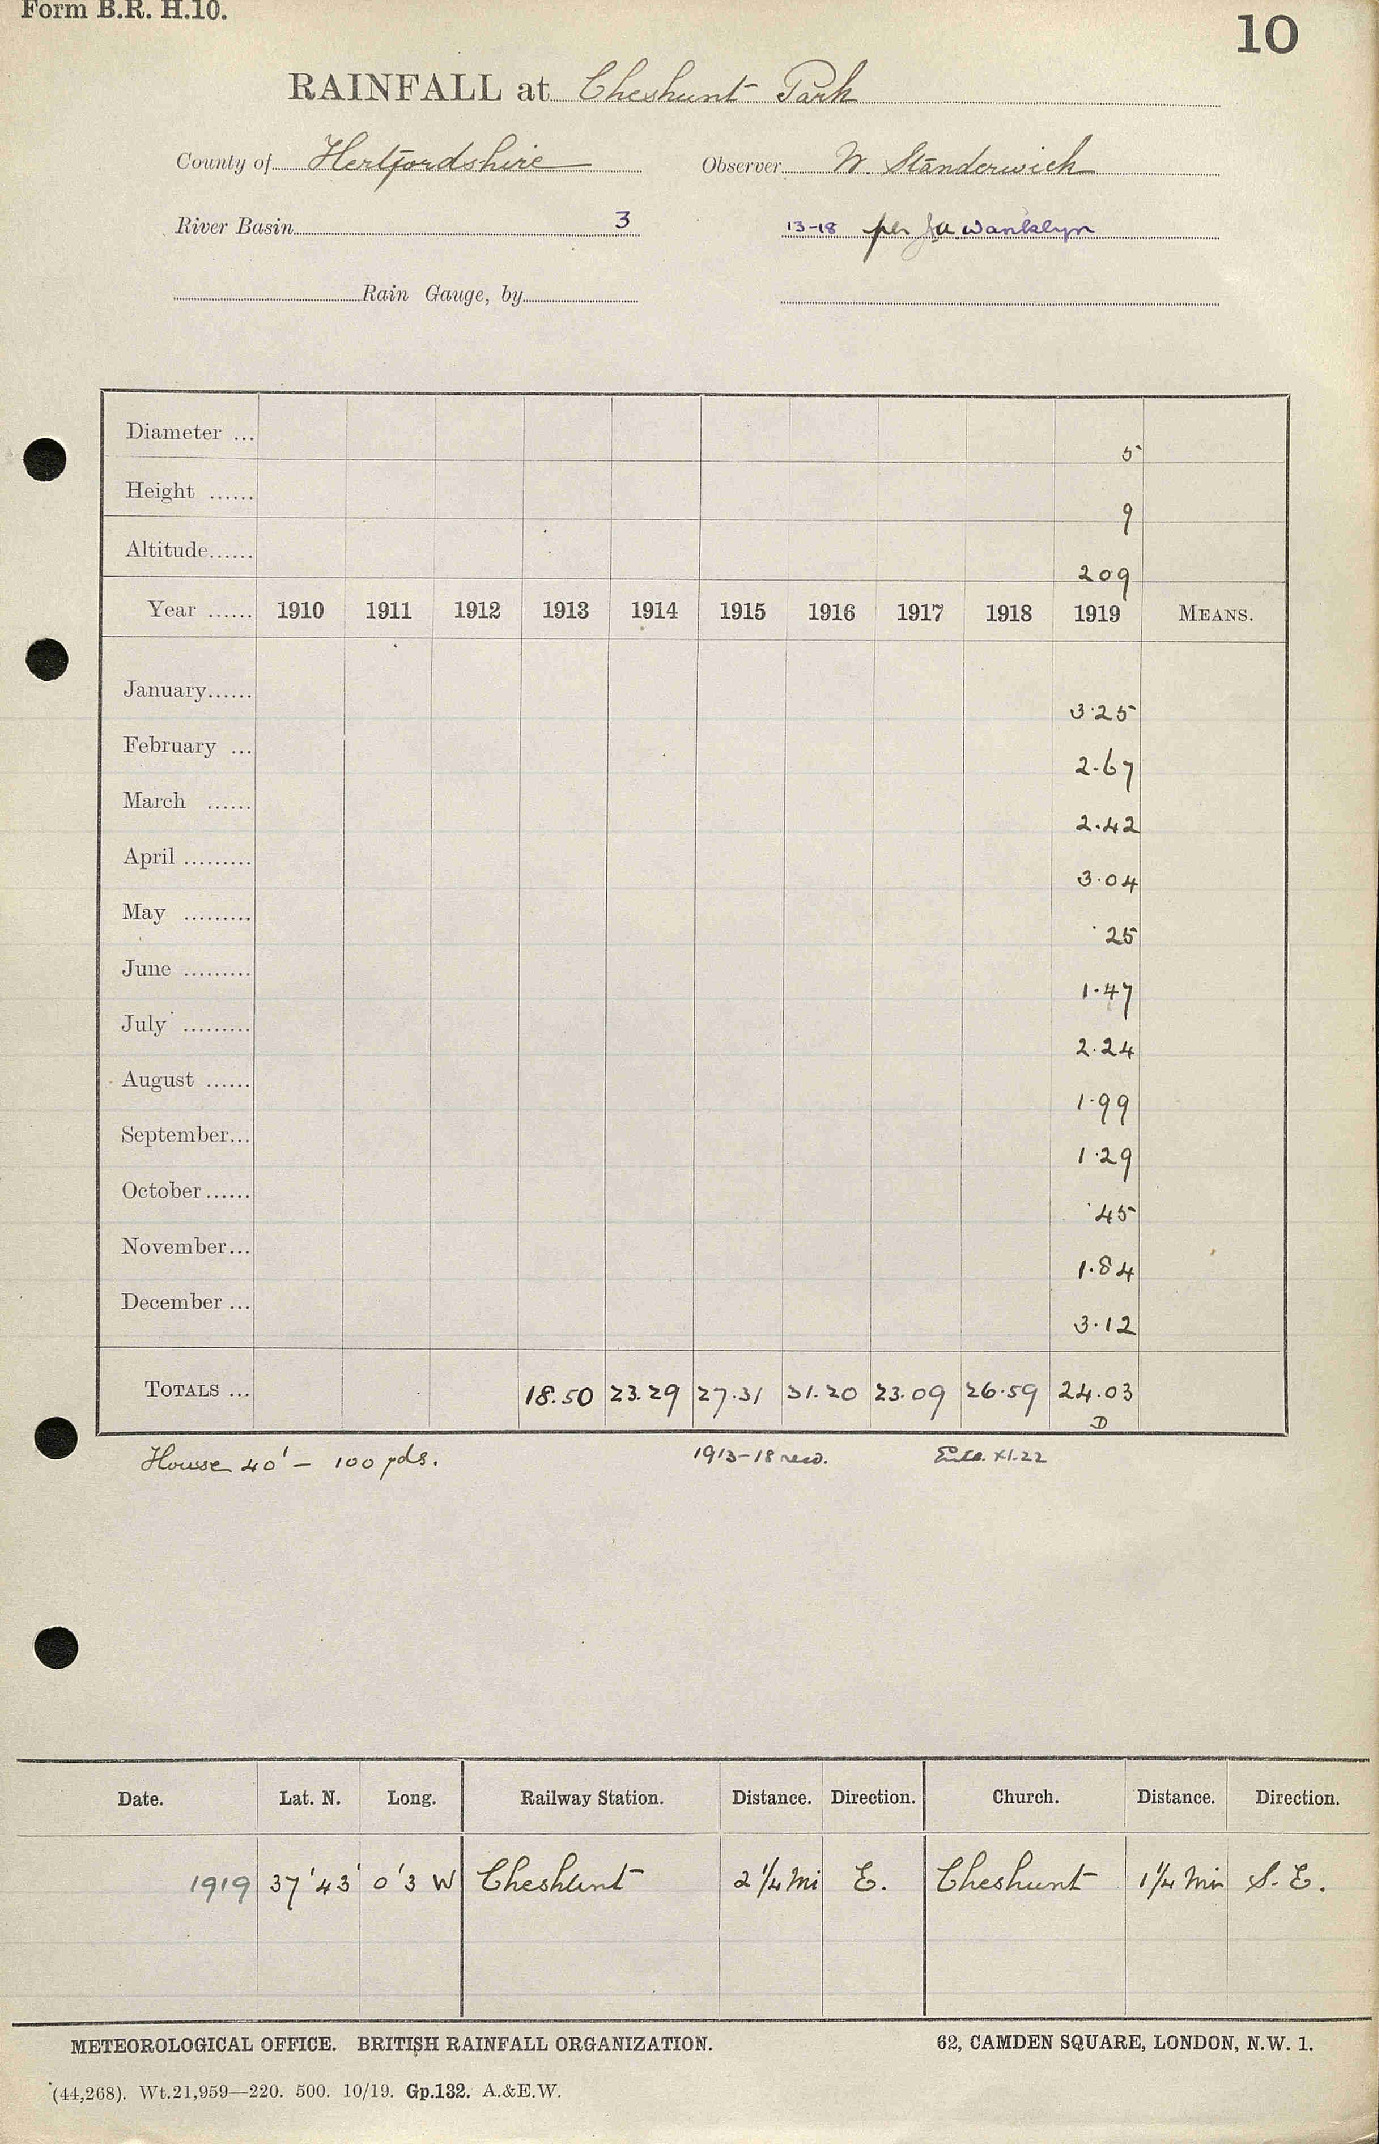 Form B.R. H.10.
10
RAINFALL at Cheshunt Park
County of Hertfordshire Observer W. Standerwich
River Basin 3 13-18 per J.A. Wanklyn
Rain Gauge, by
Diameter ... 5
Height ...... 9
Altitude...... 209
Year ...... 1910 1911 1912 1913 1914 1915 1916 1917 1918 1919 MEANS.
January...... 3.25
February ... 2.67
March ...... 2.42
April ......... 3.04
May ......... .25
June ......... 1.47
July ......... 2.24
August ...... 1.99
September... 1.29
October...... .45
November... 1.84
December ... 3.12
TOTALS ... 18.50 23.29 27.31 31.20 23.09 26.59 24.03
D
House 40' - 100 yds. 1913-18 recd. XI.22
Date. Lat. N. Long. Railway Station. Distance. Direction. Church. Distance. Direction.
1919 37'43' 0'3 W Cheshunt 2 1/4 Mi E. Cheshunt 1 1/4 Mi S.E.
METEOROLOGICAL OFFICE. BRITISH RAINFALL ORGANIZATION. 62, CAMDEN SQUARE, LONDON, N.W. 1.
(44,268). Wt.21,959—220. 500. 10/19. Gp.132. A.&E.W.